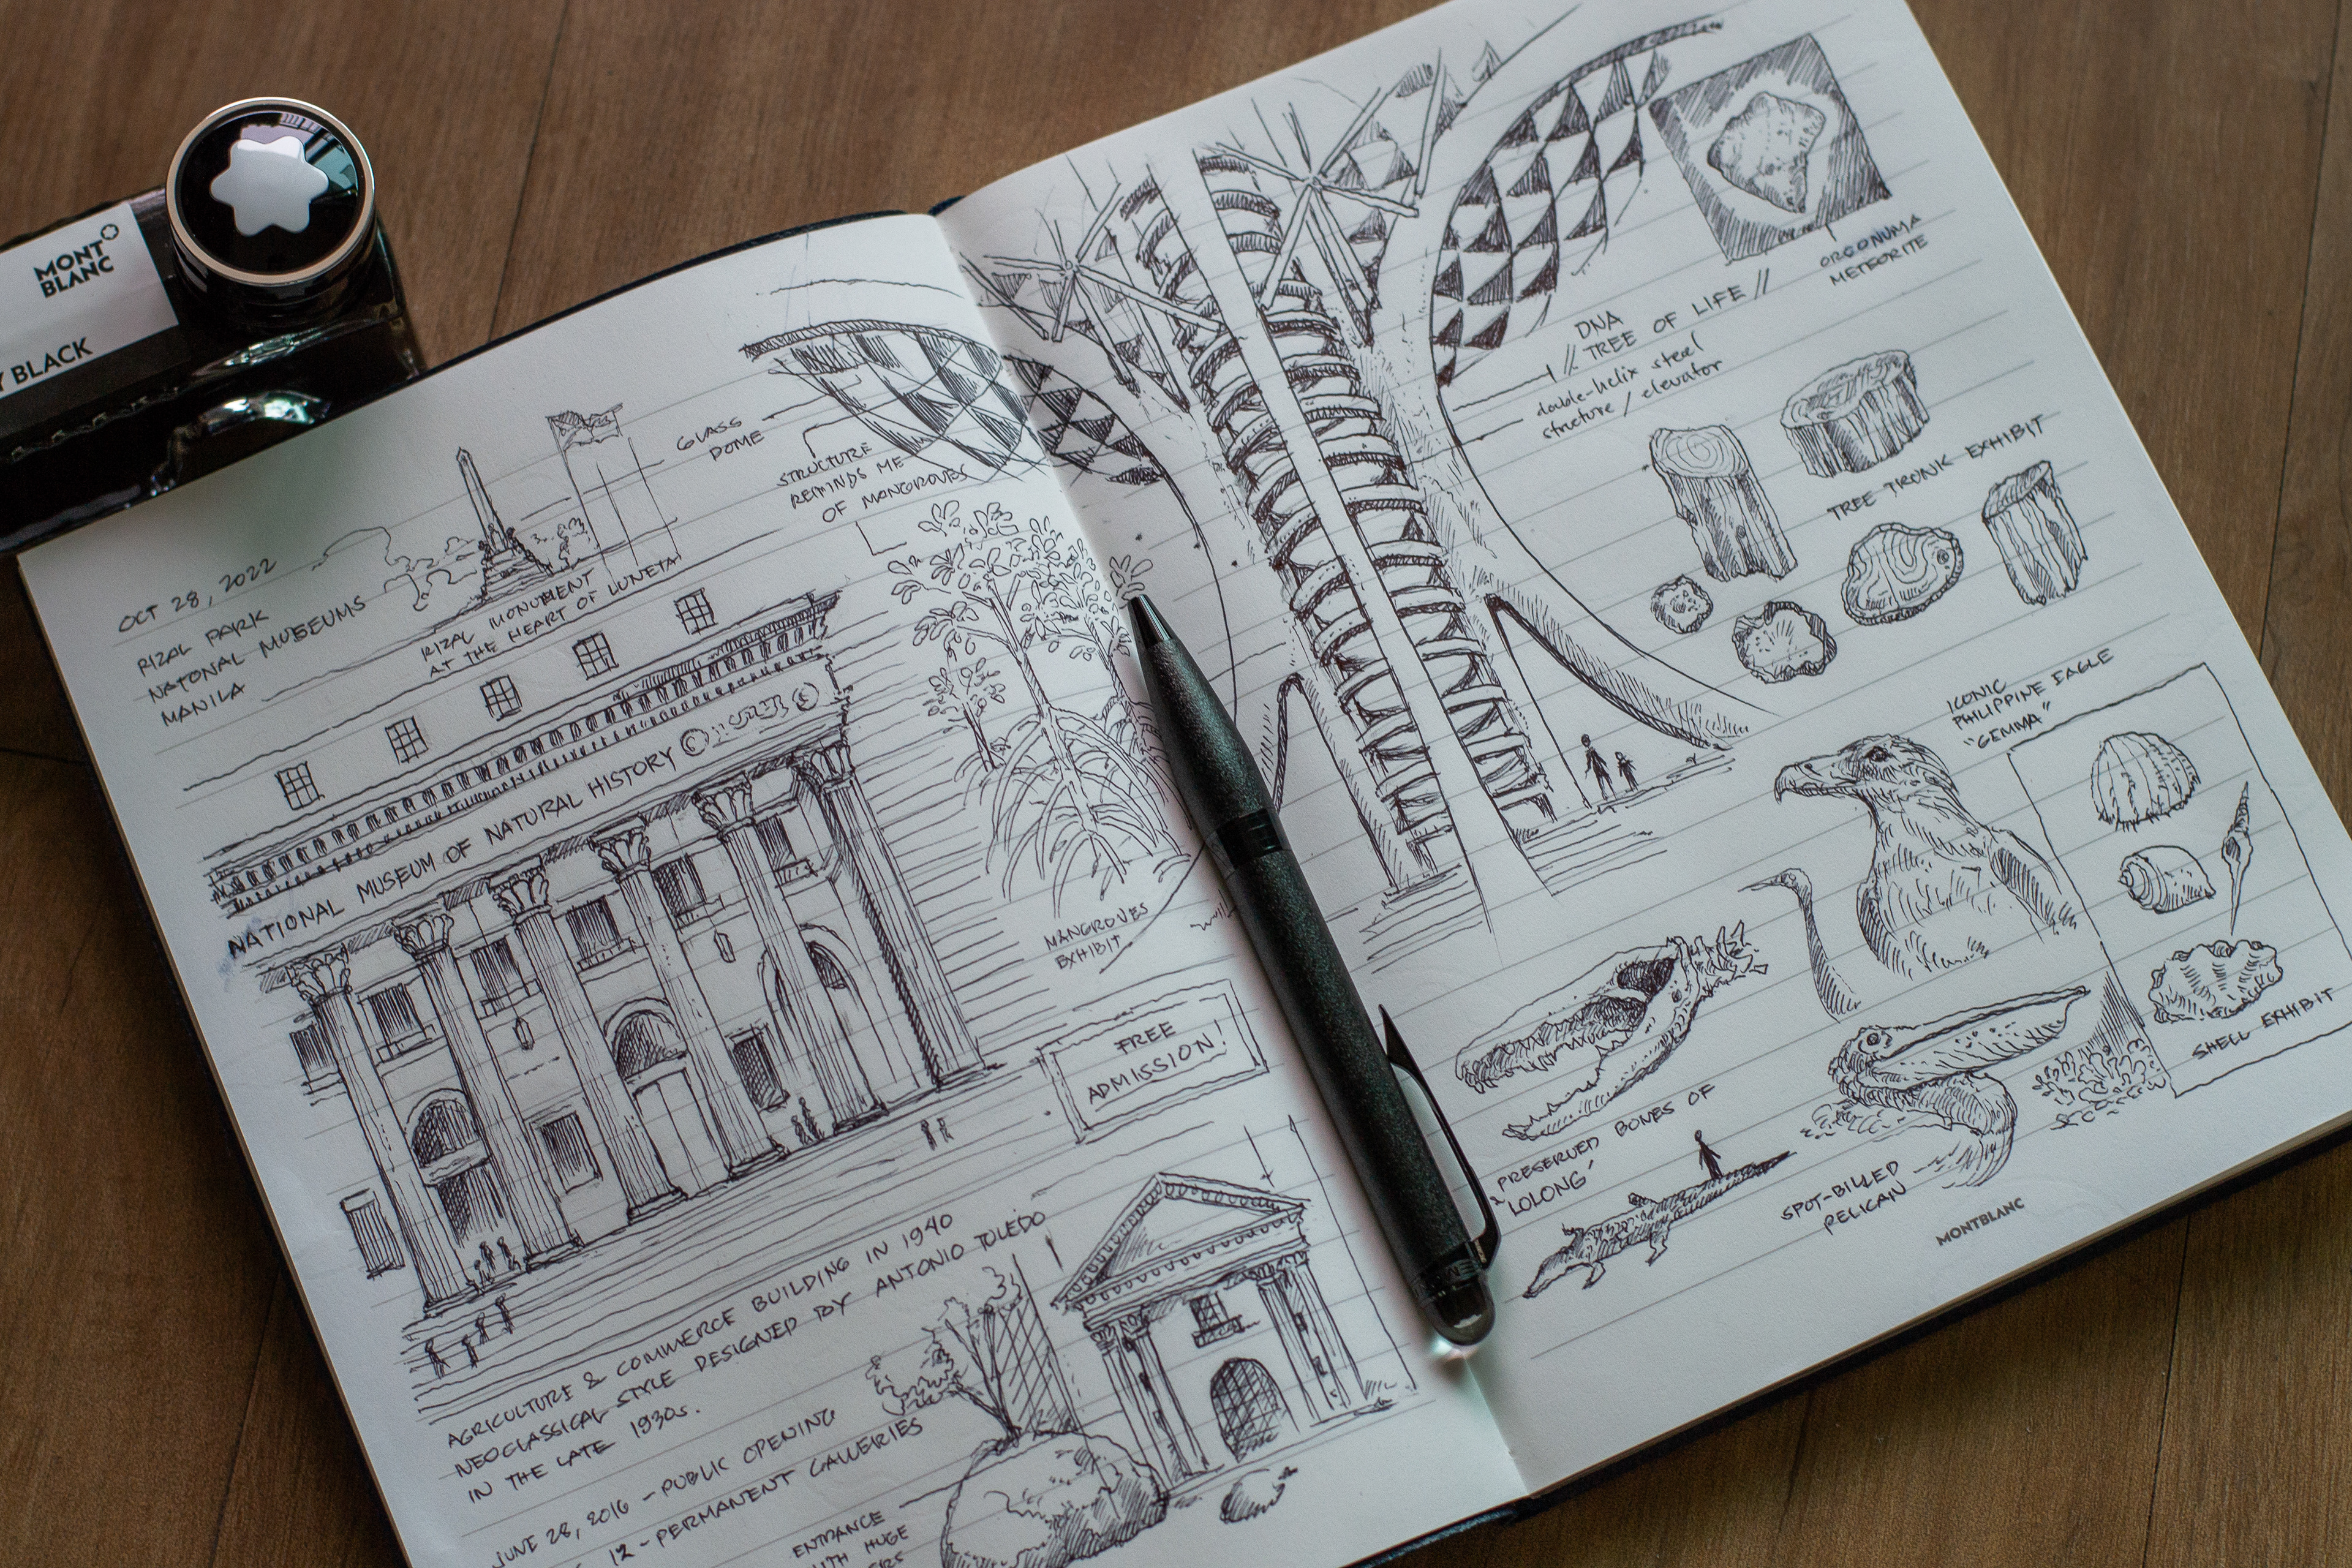 MONT
BLANC
Y BLACK
OCT 28, 2022
RIZAL PARK
NATONAL MUSEUMS
MANILA
RIZAL MONUMENT
AT THE HEART OF LUNETA
GLASS
DOME
STRUCTURE
REMINDS ME
OF MANGROVES
NATIONAL MUSEUM OF NATURAL HISTORY
MANGROVES
EXHIBIT
FREE
ADMISSION!
AGRICULTURE & COMMERCE BUILDING IN 1940
NEOCLASSICAL STYLE DESIGNED BY ANTONIO TOLEDO
IN THE LATE 1930s.
JUNE 28, 2016 - PUBLIC OPENING
12 - PERMANENT GALLERIES
ENTRANCE
WITH HUGE
ORCONUMA
METEORITE
DNA
// TREE OF LIFE //
double-helix steel
structure / elevator
TREE TRONK EXHIBIT
ICONIC
PHILIPPINE EAGLE
"GEMMA"
SHELL EXHIBIT
PRESERVED BONES OF
"LOLONG"
SPOT-BILLED
PELICAN
MONTBLANC